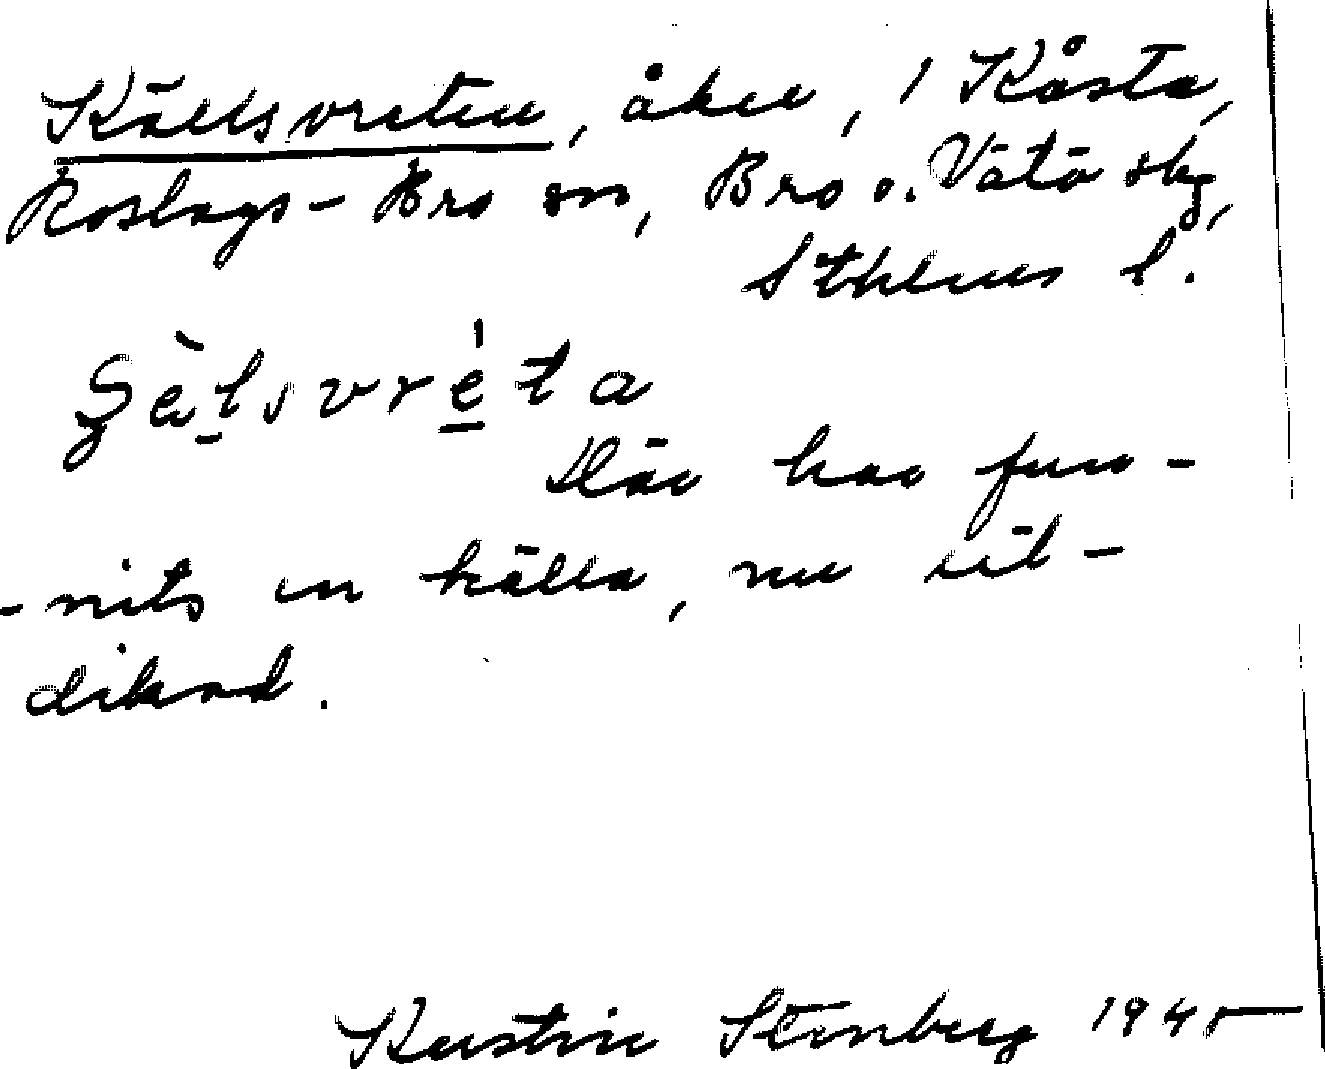 Källsvreten, åker, 1 Kåsta,
Roslags-Bro sn, Bro o. Vätö skg,
Sthlms l.
Där har fun-
-nits en källa, nu ut-
dikad.
Kerstin Stenberg 1945